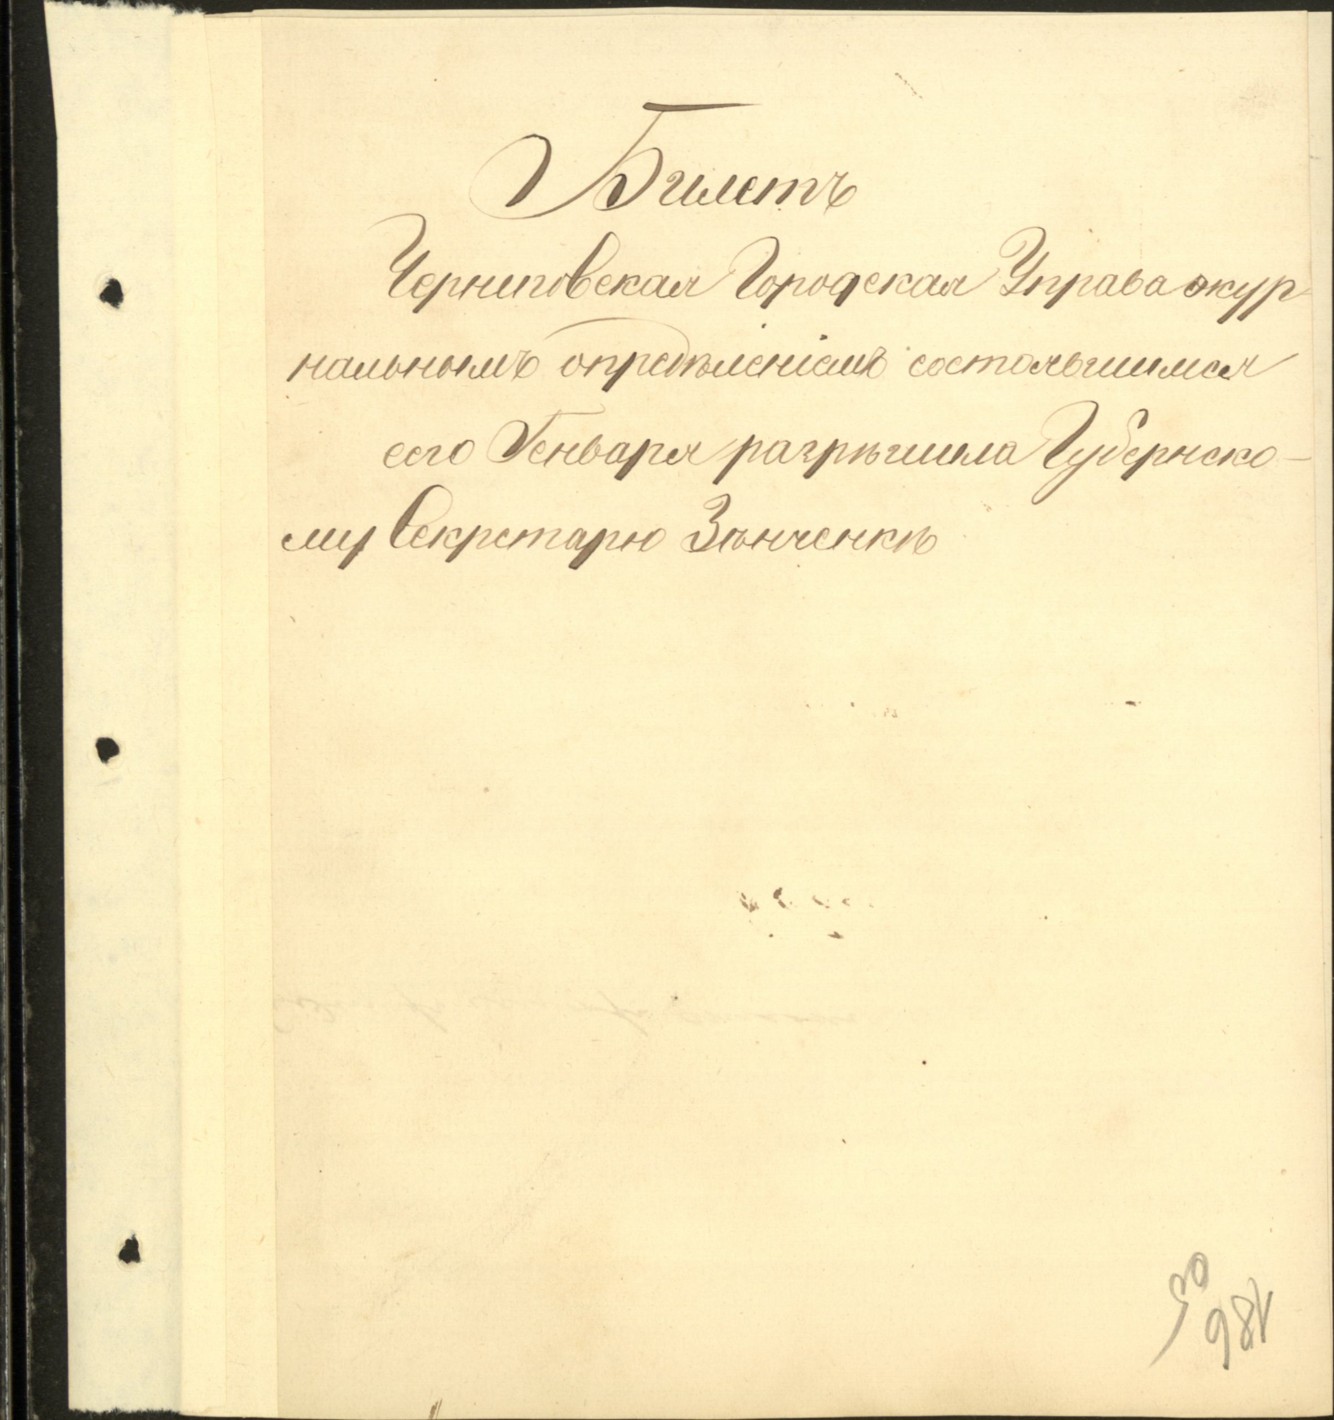 Билетъ
Черниговская Городская Управа жур-
нальнымъ опредѣленіемъ состоявшимся
сего Генваря разрѣшила Губернско-
му Секретарю Зѣнченкѣ
186